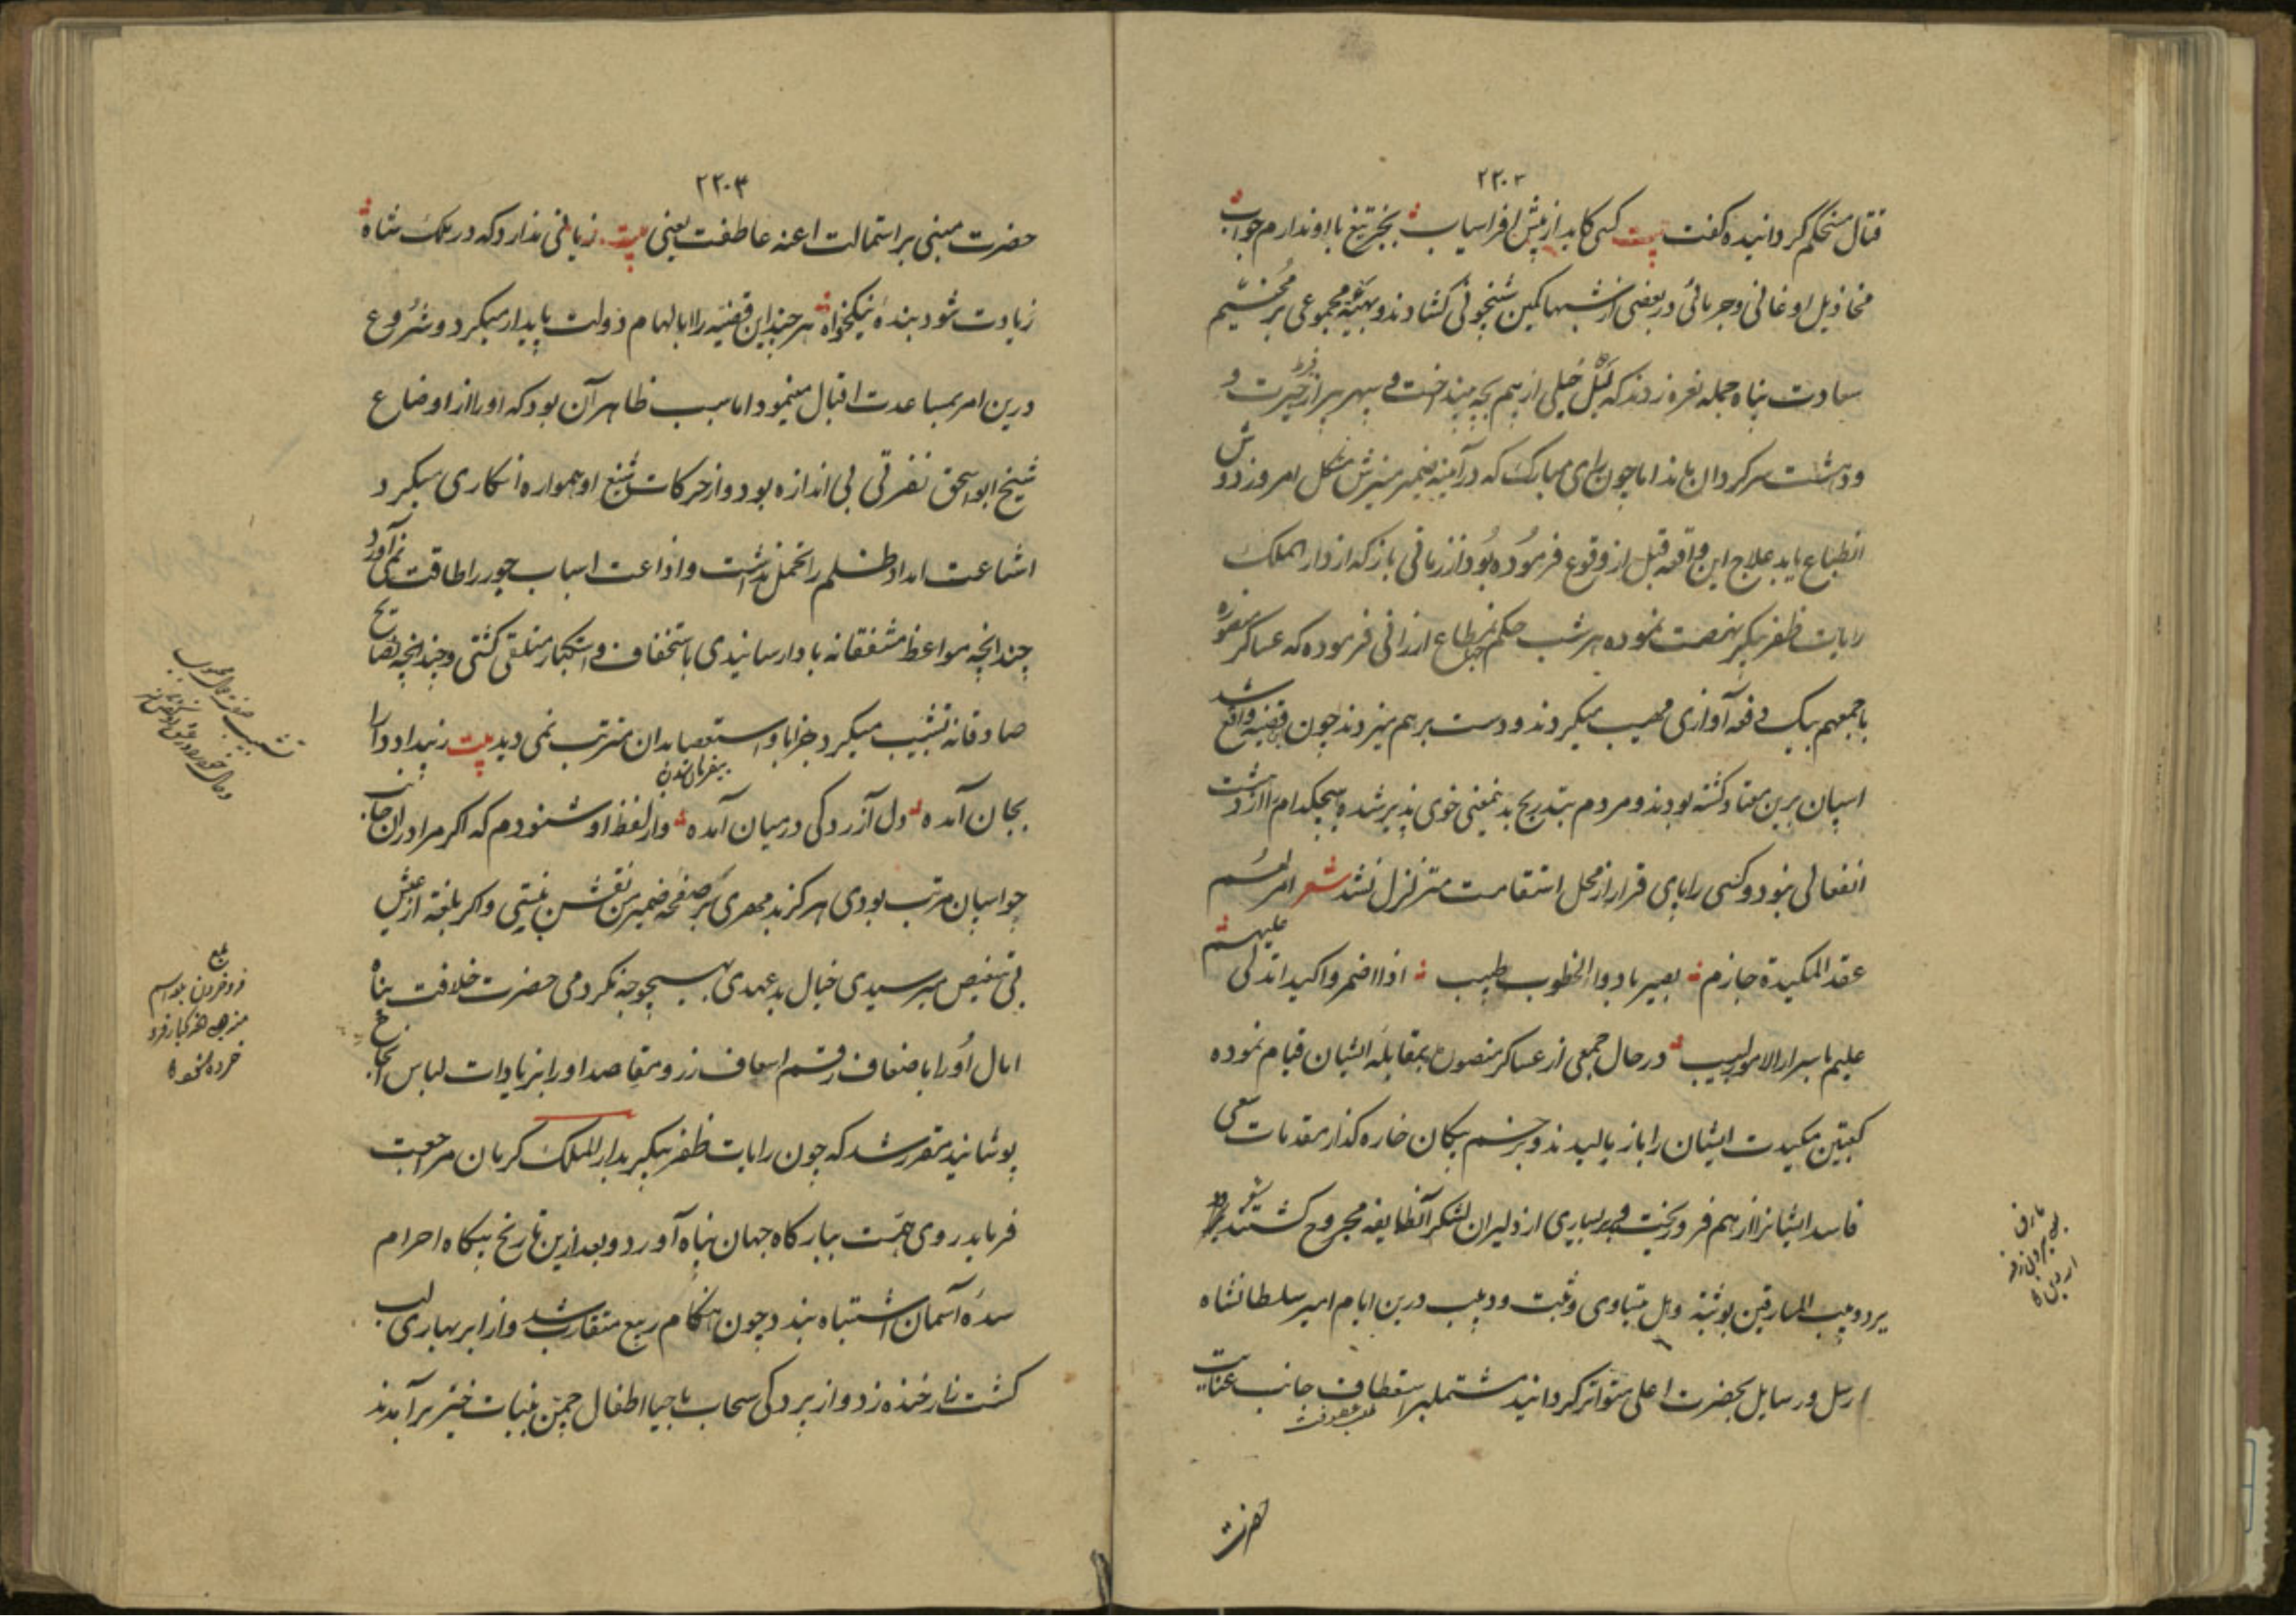 ۲۲۰۲
قتال مستحکم گردانیده گفت بیت کسی کاید از پیش افراسیاب بجز تیغ با او ندارم جواب
مخاذیل اوغانی و جرمائی در بعضی از شبها کمین شبخونی گشادند و بهیئة مجموعی بر مخیم
سعادت پناه حمله نعره زدند که خیلی از هم و سپهر پیر از حیرت و
و دهشت سرگردان بماند اما چون رای مبارک که در آیینه ضمیر منیرش شکل امروز دوش
انطباع یابد علاج این واقعه قبل از وقوع فرموده بود از زمانی باز که از دار الملک
رایات ظفر پیکر نهضت نموده هر شب حکم ارزانی فرموده که عساکر منصوره
باجمعهم بیک دفعه آوازی مهیب میکردند و دست بر هم میزدند چون قضیه واقع شد
اسپان برین معتاد گشته بودند و مردم بتدریج بدینمعنی خوی پذیر شده هیچکدام را از دهشت
انفعالی نبود و کسی را پای قرار از محل استقامت متزلزل نشد شعر امرلهم
عقد المکیدة حازم بصیر بادواء الخطوب طبیب اذا اضمروا کیدا تدلی علیهم
علیم باسرار الامور لبیب در حال جمعی از عساکر منصور بمقابله ایشان قیام نموده
کعبتین مکیدت ایشان را باز مالیدند و بزخم پیکان خاره گذار مقدمات سعی
فاسد ایشانرا از هم فرو ریخت و بسیاری از دلیران لشکر آنطایفه مجروح گشتند شعر
یرد وثبة وهل یتساوی وثبت ودبیب درین ایام امیر سلطانشاه
ارسل و رسایل بحضرت اعلی متواتر گردانید مشتمل بر استعطاف جانب عنایت
حضرت
۲۲۰۳
حضرت مبنی بر استمالت اعنه عاطفت یعنی بیت زیانی ندارد که در ملک شاه
زیادت شود بنده نیکخواه هر چند این قضیه را با لهام دولت پایدار میکرد و شروع
درین امر بمساعدت اقبال مینمود اما سبب ظاهر آن بود که او را از اوضاع
شیخ ابو اسحق نفرتی بی اندازه بود و از حرکات شنیع او همواره انکاری میکرد
اشاعت امداد ظلم را تحمل نداشت و اذاعت اسباب جور را طاقت نمی آورد
چندانچه مواعظ مشفقانه باو ارسانیدی باستخفاف و استکبار متلقی گشتی و چندانچه نصایح
صادقانه تشبیب میکرد جز ابا و استعصا بدان مترتب نمی دید بیت زبیداد دارا
بجان آمده دل آزردگی در میان آمده و از لفظ او شنودم که اگر مرا در آن جانب
چو اسپان مرتب بودی هرگز بدمهری بر صفحه ضمیر من نقش نبستی و اگر بلغه از عیش
بی تنغیص میرسیدی خیال بدعهدی بهیچوجه نکردمی حضرت خلافت پناه
امال او را باضعاف رقم اسعاف زد و مقاصد او را بزیادات لباس انجاح
پوشانید مقرر شد که چون رایات ظفر پیکر بدار الملک کرمان مراجعت
فرماید روی همت ببارگاه جهان پناه آورد و بعد ازین تاریخ بیکاه احرام
سده آسمان اشتباه بندد چون هنگام ربیع متقارب شد و از ابر بهاری لب
کشت زار خنده زد و از پردگی سحاب با حیا اطفال چمن بنبات خیز برآمدند